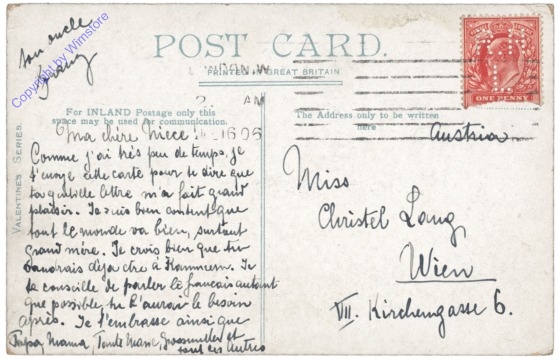 ton oncle
Copyright by Wimstore
POST CARD.
PRINTED IN GREAT BRITAIN
ONE PENNY
For INLAND Postage only this
space may be used for communication.
The Address only to be written
here
VALENTINE'S SERIES.
Ma chère Nièce!
Comme j'ai très peu de temps, je
t'envoye cette carte pour te dire que
ta gentille lettre m'a fait grand
plaisir. Je suis bien content que
tout le monde va bien, surtout
grand mère. Je crois bien que tu
voudrais déja être à Kammern. Je
te conseille de parler le français autant
que possible, tu l'auras le besoin
après. Je t'embrasse ainsi que
Papa, Mama, Tante Marie, Grossmutter et
tous les autres
Austria
Miss
Christel Lang
Wien
VII. Kirchengasse 6.